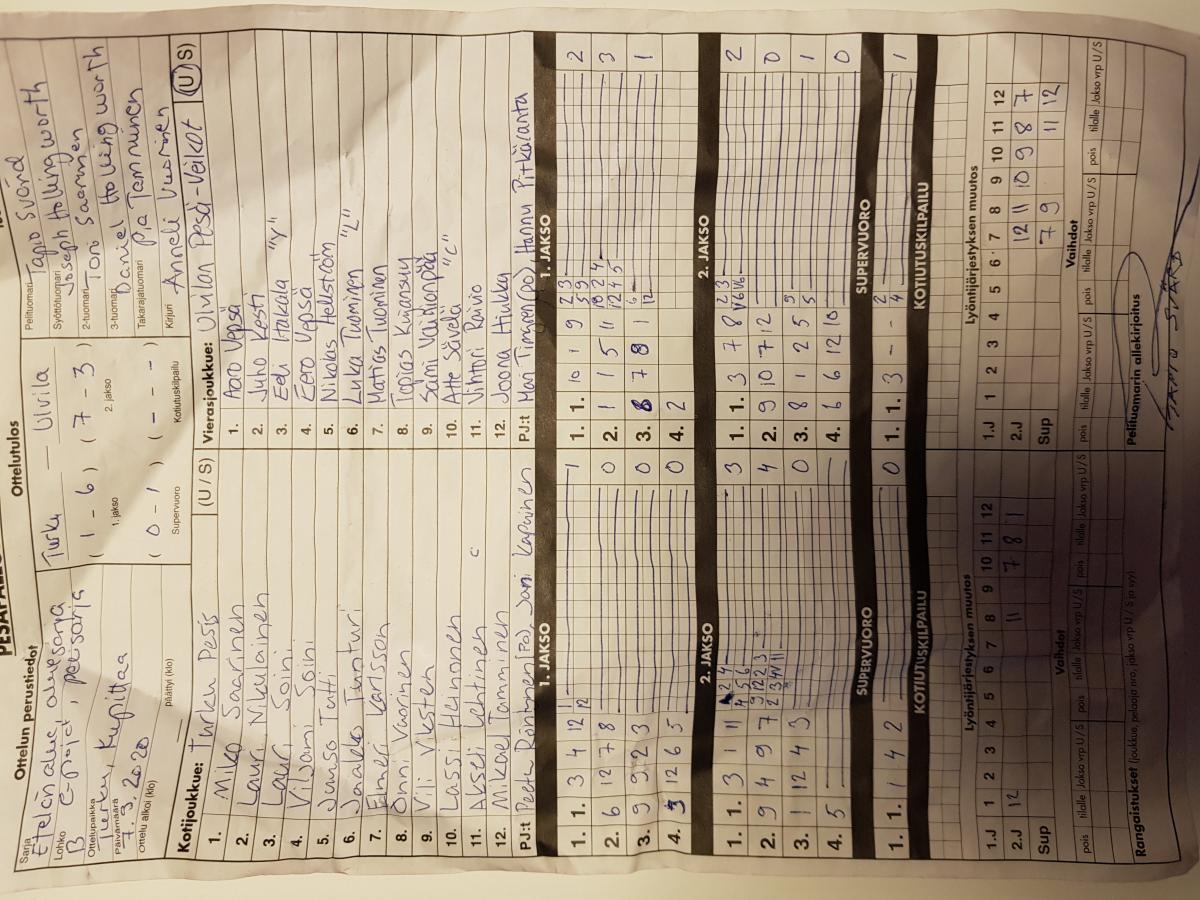 PESÄPALLO
Ottelun perustiedot
Sarja Etelän alue, aluesarja
Lohko B E-pojat, poikasarja
Ottelupaikka Turku, Kupittaa
Päivämäärä 7.9.2020
Ottelu alkoi (klo)
päättyi (klo)
Ottelutulos
Turku — Ulvila
( 1 - 6 ) ( 7 - 3 )
1. jakso 2. jakso
( 0 - 1 ) ( - - - )
Supervuoro Kotiutuskilpailu
Pelituomari Tapio Svärd
Syöttötuomari Joseph Hollingworth
2-tuomari Toni Saarinen
3-tuomari Daniel Hollingworth
Takarajatuomari Pia Tamminen
Kirjuri Anneli Vuorinen
Kotijoukkue: Turku Pesis (U / S)
1. Mika Saarinen
2. Lauri Nikulainen
3. Lauri Soini
4. Viljami Soini
5. Juuso Tutti
6. Jaakko Tunturi
7. Elmeri Karsson
8. Onni Vuorinen
9. Vili Viksten
10. Lassi Hennonen
11. Akseli Lehtinen C
12. Mikael Tamminen
PJ:t Peetu Röntynen (PJ), Jani Kapainen
Vierasjoukkue: Ulvilan Pesä-Veikot (U / S)
1. Aaro Vepsä
2. Juho Kesti
3. Eeli Hakala "Y"
4. Eero Vepsä
5. Nikolas Hellström
6. Luka Tuominen "L"
7. Matias Tuominen
8. Topias Kujansuu
9. Sami Vainionpää
10. Atte Sävelä "C"
11. Vihtori Raivio
12. Joona Hiukka
PJ:t Mari Timgren (PJ), Hannu Pitkäranta
1. JAKSO
1. 1. 3 4 12 1 12 1
2. 6 12 7 8 0
3. 9 9 2 3 0
4. 3 12 6 5 0
1. JAKSO
1. 1. 10 1 9 2 3 5 9 2
2. 1 1 5 11 10 2 4 12 4 5 3
3. 8 7 8 1 6 12 1
4. 2
2. JAKSO
1. 1. 3 1 11 1 2 4 4 5 6 3
2. 9 4 9 7 9 12 2 3 2 3 4 11 4
3. 1 12 4 3 0
4. 5
2. JAKSO
1. 1. 3 7 8 2 3 2
2. 9 10 7 12 0
3. 8 1 2 5 9 5 1
4. 6 6 12 10 0
SUPERVUORO
1. 1. 1 4 2 0
SUPERVUORO
1. 1. 3 - - 2 4 1
KOTIUTUSKILPAILU
KOTIUTUSKILPAILU
Lyöntijärjestyksen muutos
1.J 1 2 3 4 5 6 7 8 9 10 11 12
2.J 12 11 7 8 1
Sup
Lyöntijärjestyksen muutos
1.J 1 2 3 4 5 6 7 8 9 10 11 12
2.J 12 11 10 9 8 7
Sup 7 9 11 12
Vaihdot
pois tilalle Jakso vrp U / S pois tilalle Jakso vrp U / S
Vaihdot
pois tilalle Jakso vrp U / S pois tilalle Jakso vrp U / S
Rangaistukset (joukkue, pelaaja nro, jakso vrp U / S ja syy)
Pelituomarin allekirjoitus